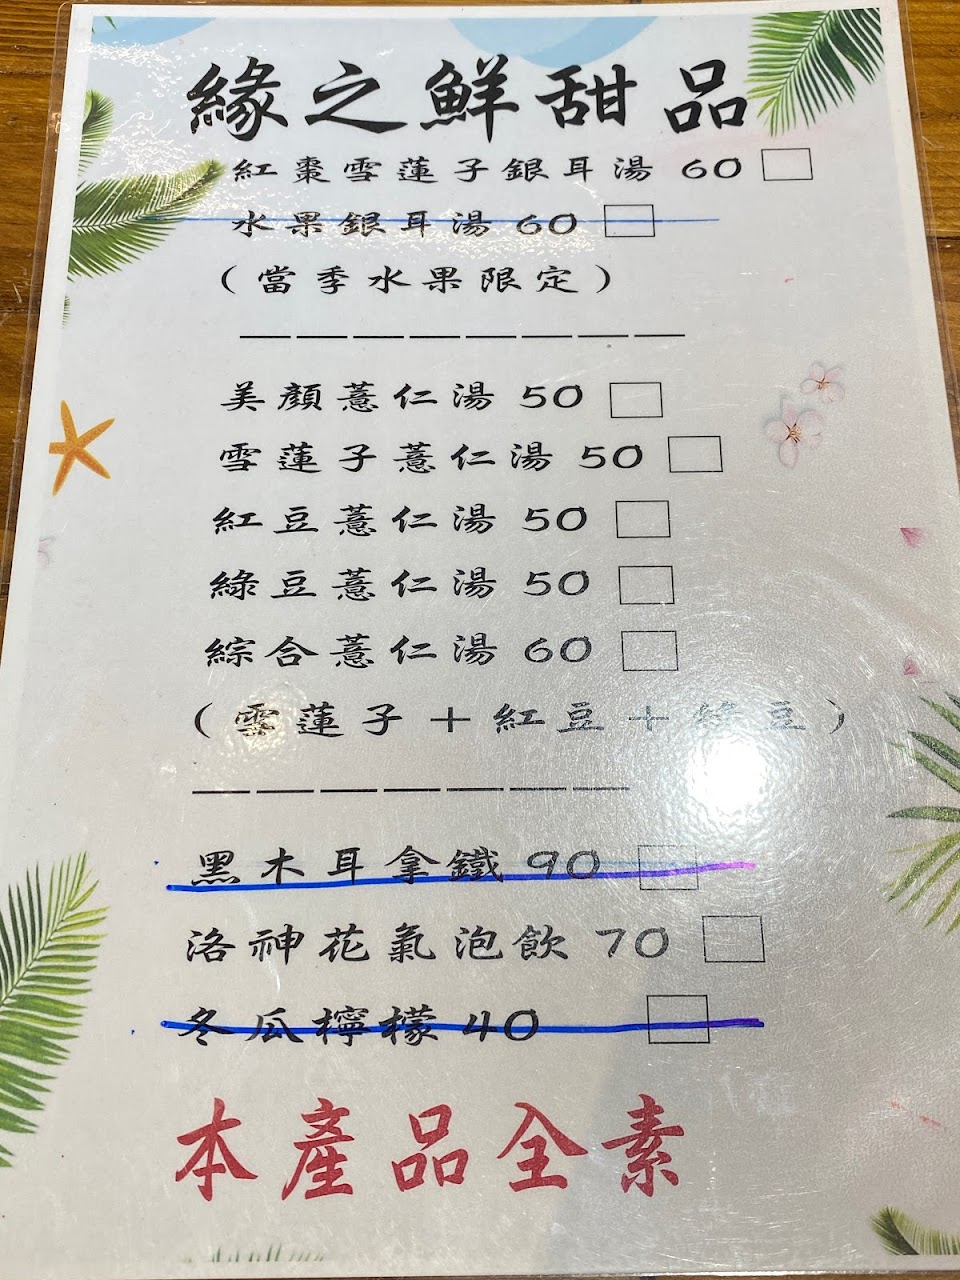 緣之鮮甜品
紅棗雪蓮子銀耳湯 60
水果銀耳湯 60
（當季水果限定）
美顏薏仁湯 50
雪蓮子薏仁湯 50
紅豆薏仁湯 50
綠豆薏仁湯 50
綜合薏仁湯 60
（雪蓮子＋紅豆＋綠豆）
黑木耳拿鐵 90
洛神花氣泡飲 70
冬瓜檸檬 40
本產品全素